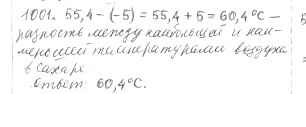 1001. 55,4 - (-5) = 55,4 + 5 = 60,4 °C —
разность между наибольшей и наи-
меньшей температурами воздуха
в Сахаре
Ответ 60,4°С.